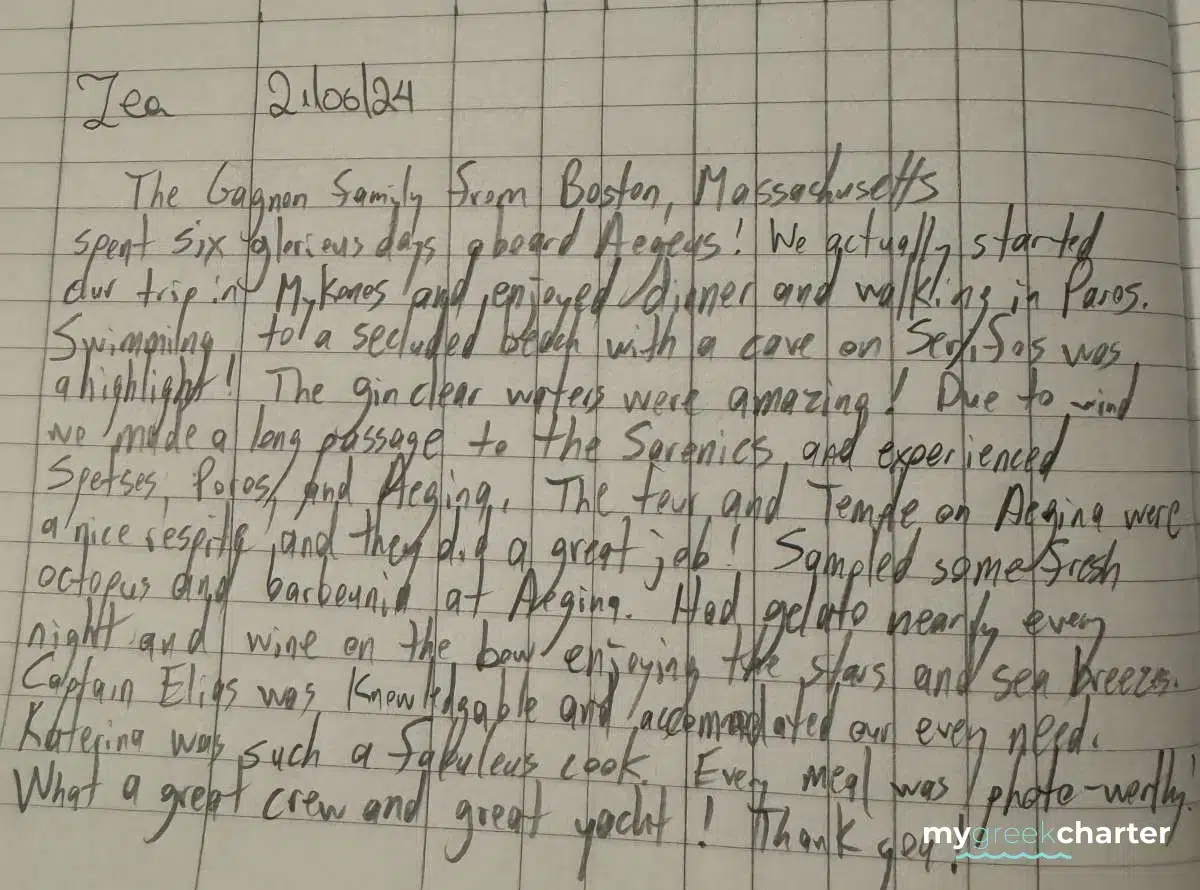 Zea 21/06/24
The Gagnon family from Boston, Massachusetts
spent six glorious days aboard Aegeus! We actually started
our trip in Mykonos and enjoyed dinner and walking in Paros.
Swimming to a secluded beach with a cave on Serifos was
a highlight! The gin clear waters were amazing! Due to wind
we made a long passage to the Saronics and experienced
Spetses, Poros, and Aegina. The tour and Temple on Aegina were
a nice respite, and they did a great job! Sampled some fresh
octopus and barbounia at Aegina. Had gelato nearly every
night and wine on the bow enjoying the stars and sea breezes.
Captain Elias was knowledgable and accommodated our every need.
Katerina was such a fabulous cook. Every meal was photo-worthy!
What a great crew and great yacht! Thank you!
mygreekcharter